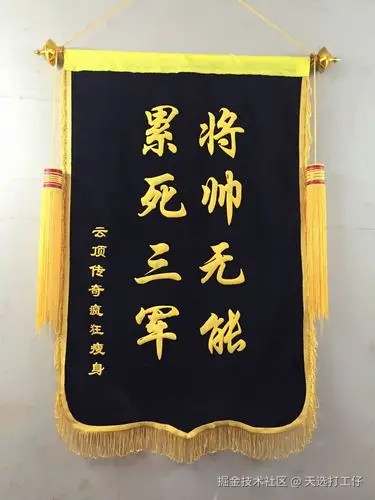 将帅无能
累死三军
云顶传奇疯狂瘦身
掘金技术社区 @ 天选打工仔